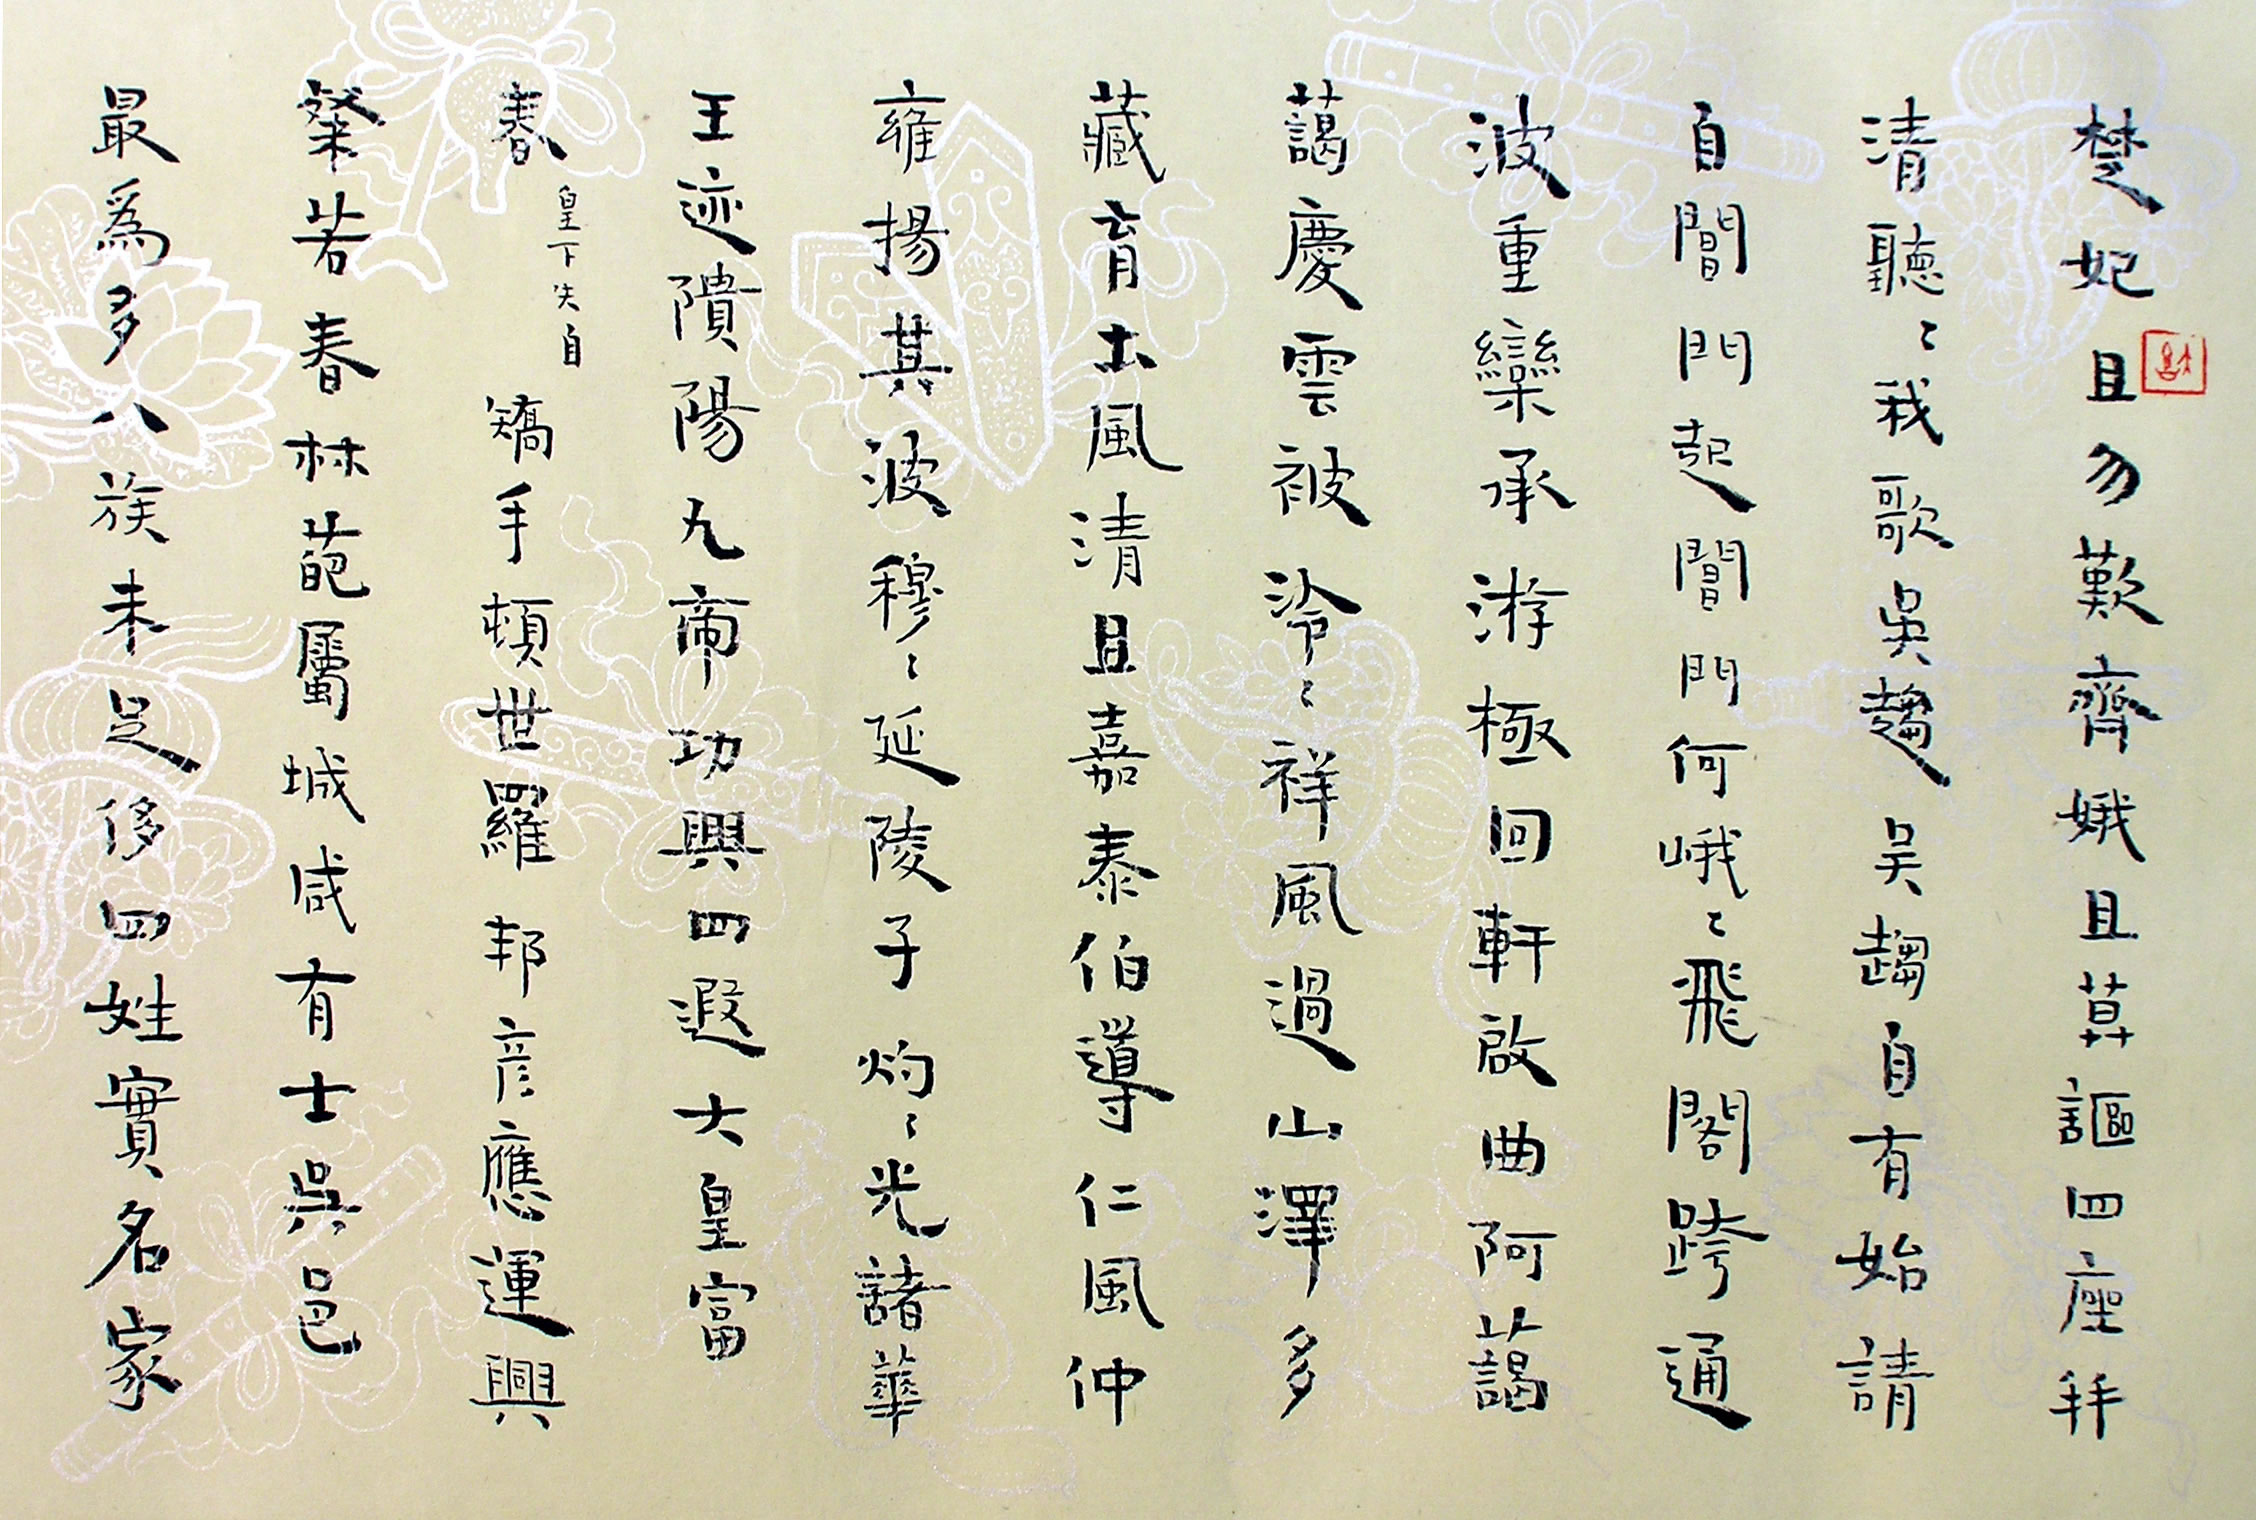 楚妃且勿歎齊娥且莫謳四座幷
清聽〻我歌吳趨吴趨自有始請
自閶門起閶門何峨〻飛閣跨通
波重欒承游極回軒啟曲阿藹
藹慶雲被泠〻祥風過山澤多
藏育土風清且嘉泰伯導仁風仲
雍揚其波穆〻延陵子灼〻光諸華
王迹隤陽九帝功興四遐大皇富
春
皇下失自
矯手頓世羅邦彥應運興
粲若春林葩屬城咸有士吳邑
最爲多八族未足侈四姓實名家